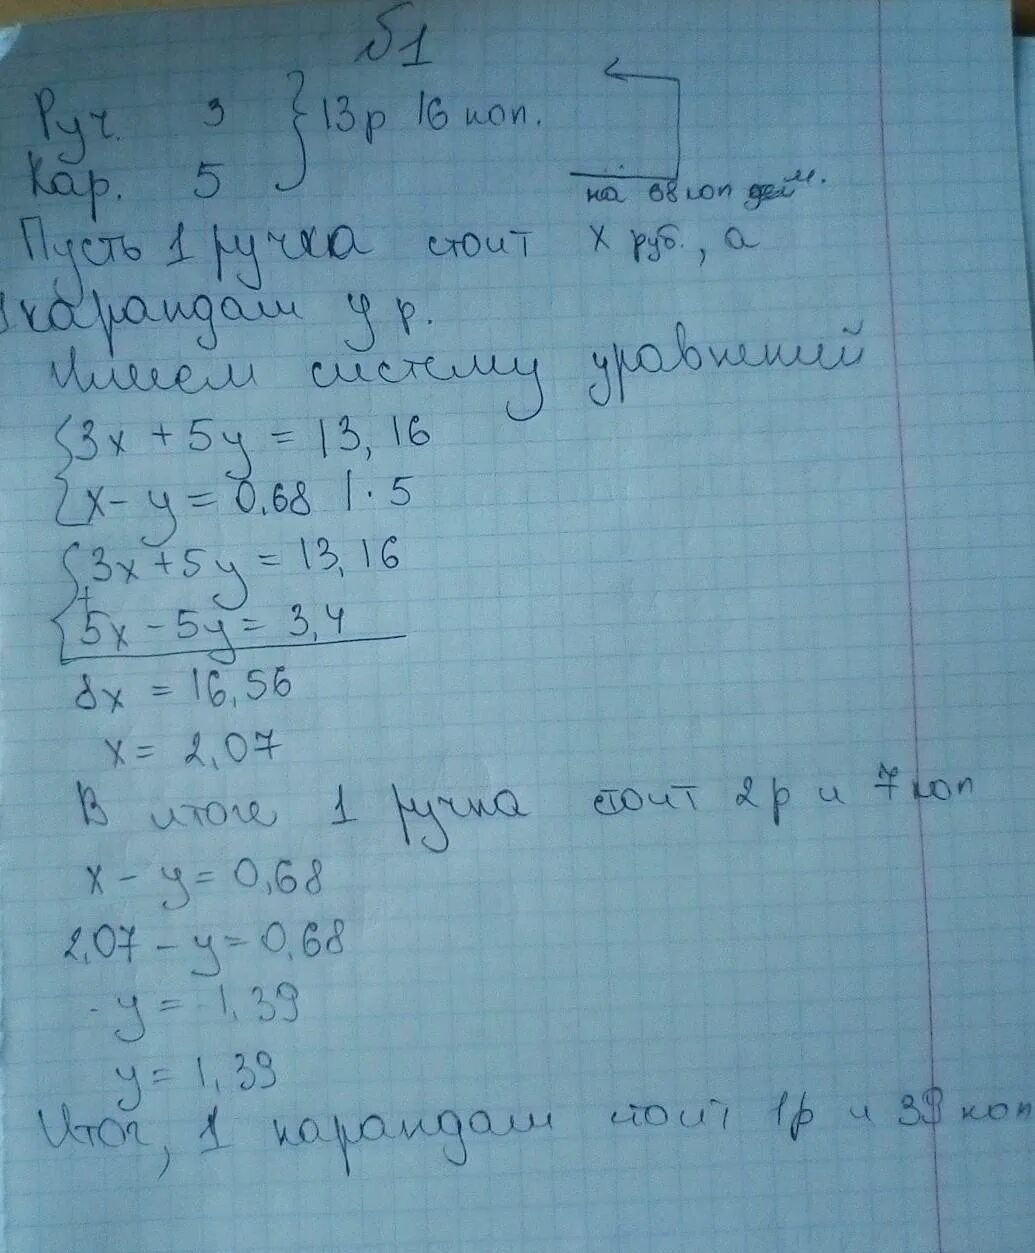 б1
Руч. 3 } 13р 16 коп.
Кар. 5
на 68 коп деш.
Пусть 1 ручка стоит x руб., а
1 карандаш y р.
Имеем систему уравнений
{3x + 5y = 13,16
{x - y = 0,68 | · 5
{3x + 5y = 13,16
+
{5x - 5y = 3,4
8x = 16,56
x = 2,07
В итоге 1 ручка стоит 2 р и 7 коп
x - y = 0,68
2,07 - y = 0,68
-y = -1,39
y = 1,39
Итог, 1 карандаш стоит 1р и 39 коп